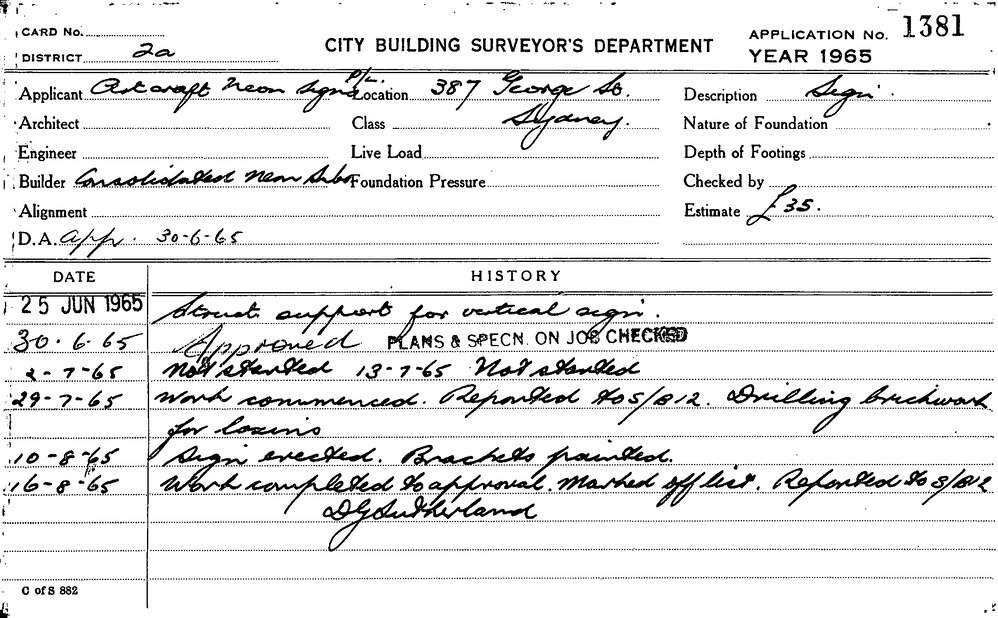 CARD No.
DISTRICT 2a
CITY BUILDING SURVEYOR'S DEPARTMENT
APPLICATION No. 1381
YEAR 1965
Applicant Artcraft Neon Signs P/L. Location 387 George St. Description Sign.
Architect Class Sydney. Nature of Foundation
Engineer Live Load Depth of Footings
Builder Consolidated Neon Foundation Pressure Checked by
Alignment Estimate £35.
D.A. app. 30-6-65
DATE HISTORY
25 JUN 1965 Struct. support for vertical sign.
30.6.65 Approved PLANS & SPECN. ON JOB CHECKED
2-7-65 Not started 13-7-65 Not started
29-7-65 Work commenced. Reported to S/B12. Drilling brickwork
for loxins
10-8-65 Sign erected. Brackets painted.
16-8-65 Work completed to approval. Marked off list. Reported to S/B12
DGSutherland
C of S 882